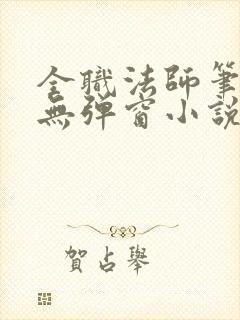 全職法師筆
無彈窗小說
賀占舉